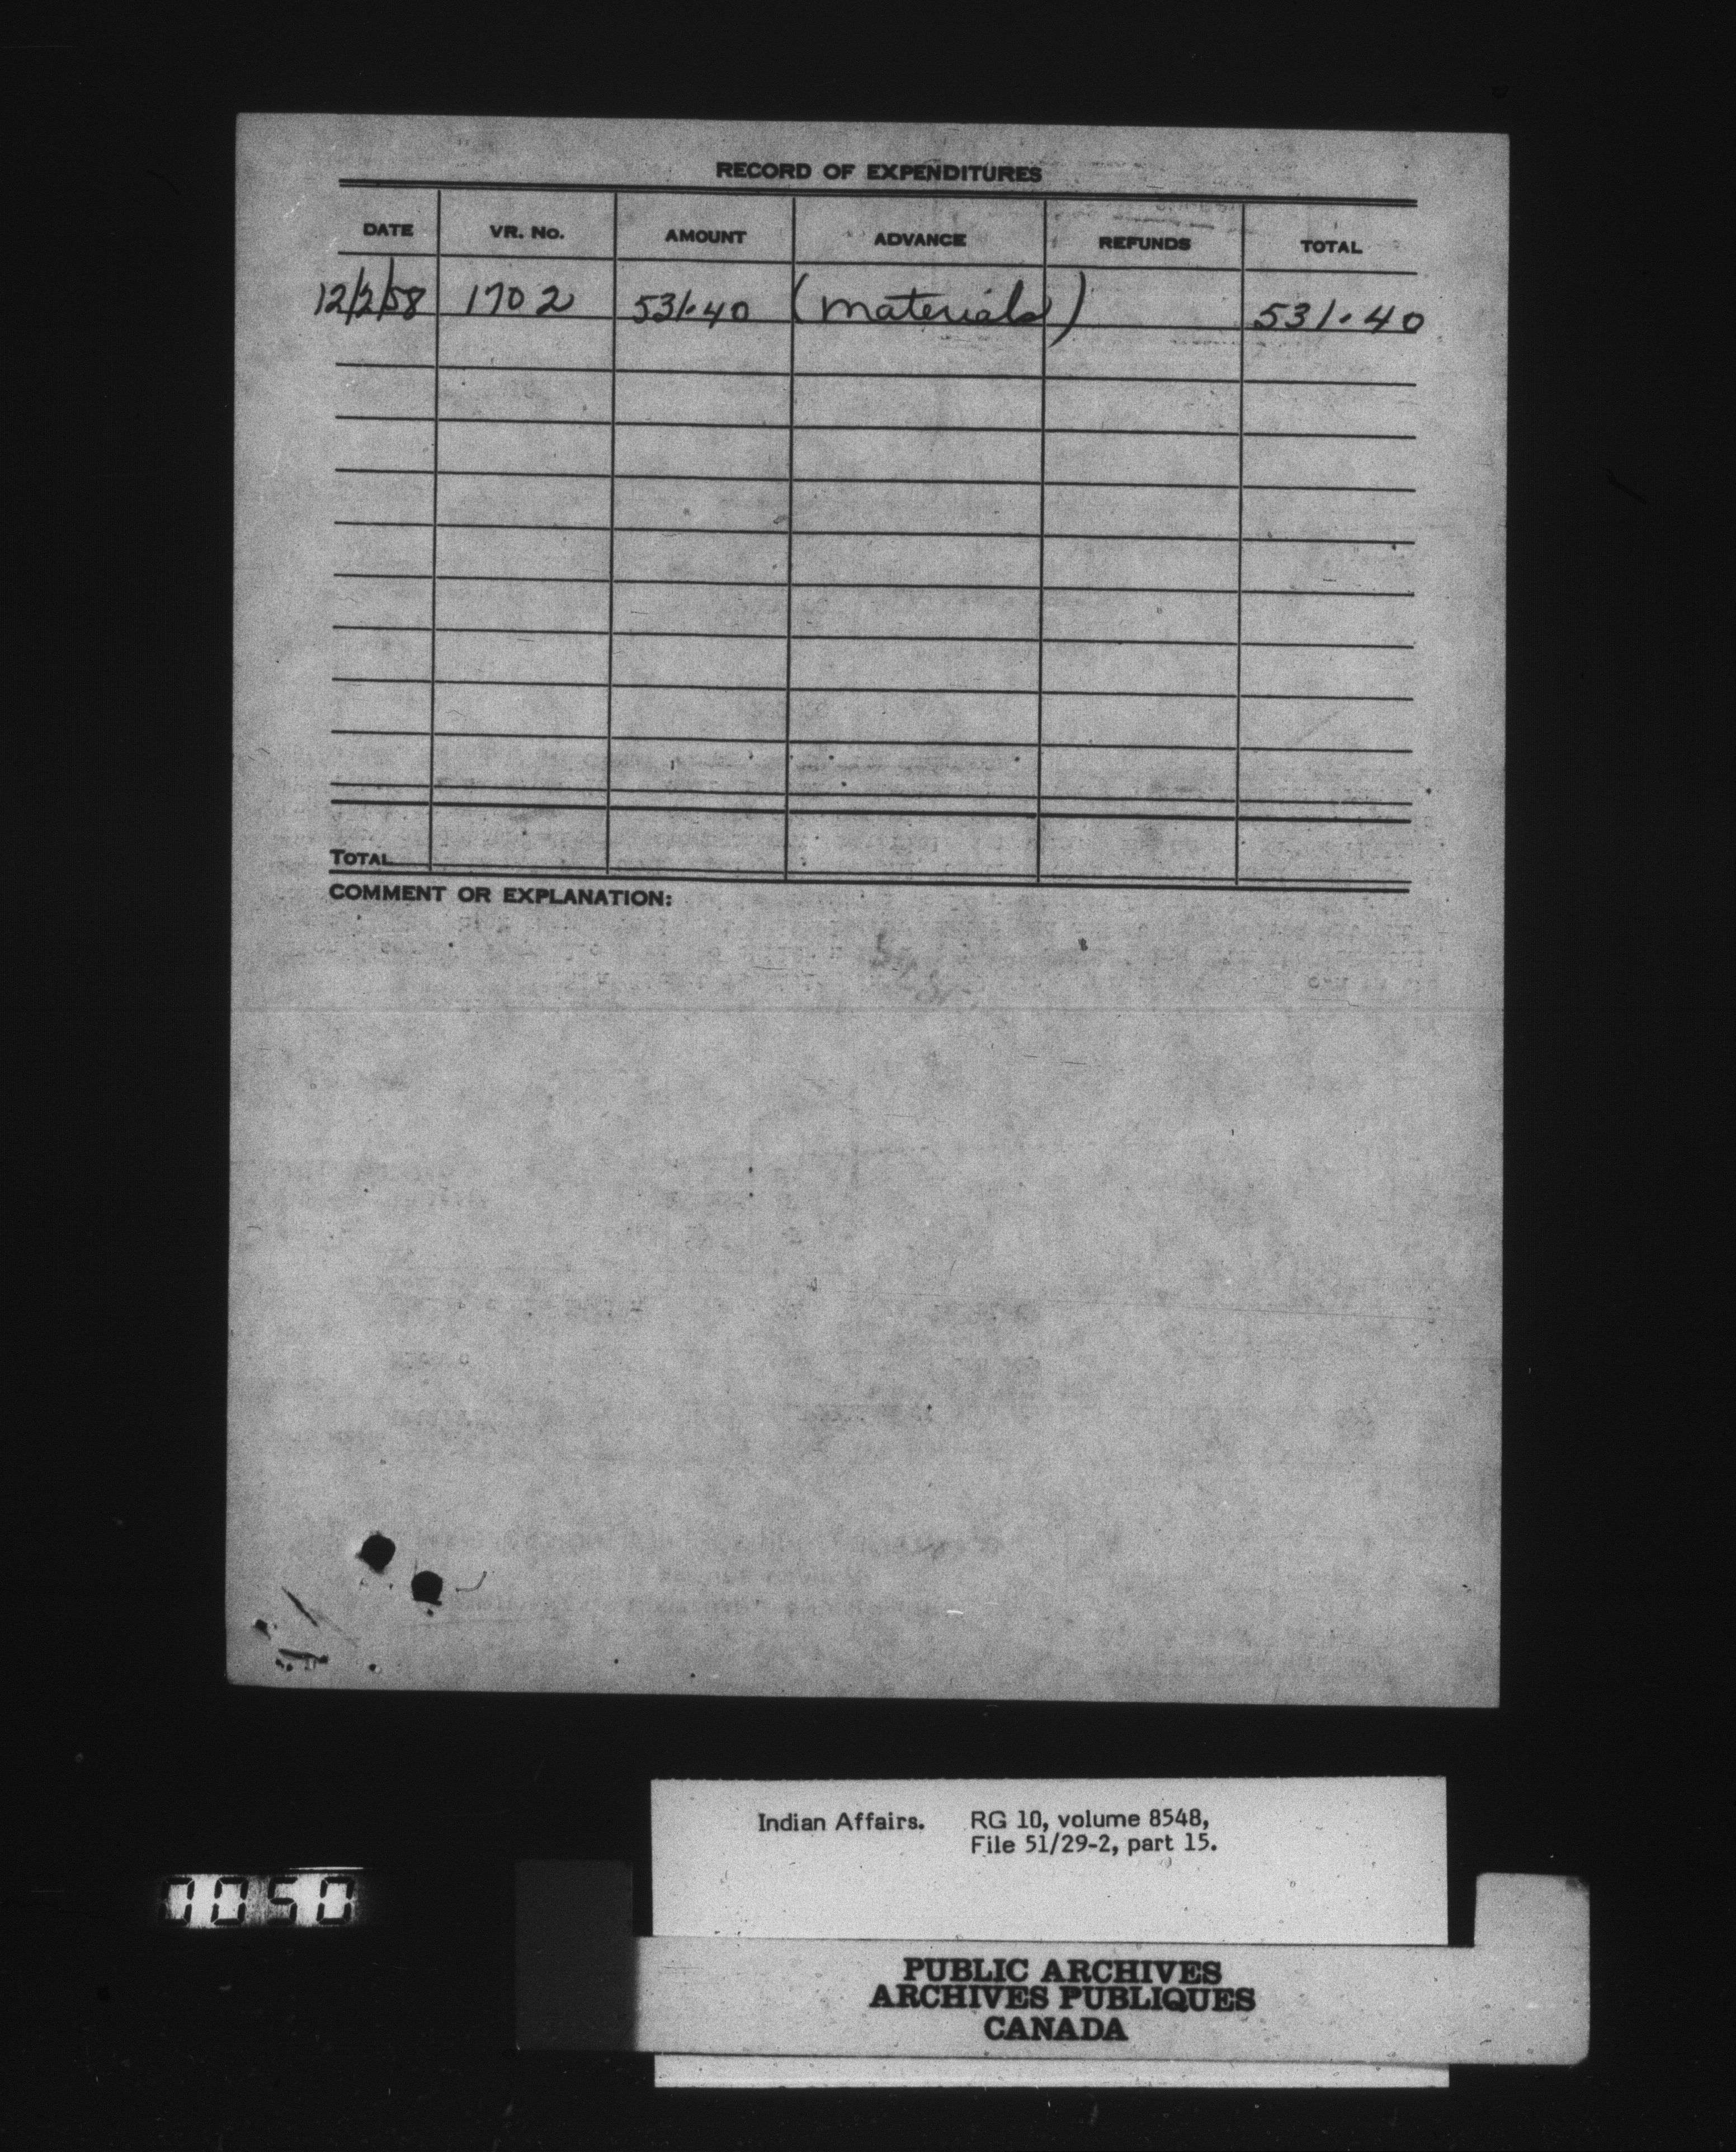 RECORD OF EXPENDITURES
DATE VR. No. AMOUNT ADVANCE REFUNDS TOTAL
12/2/58 1702 531.40 (materials) 531.40
TOTAL
COMMENT OR EXPLANATION:
Indian Affairs. RG 10, volume 8548,
File 51/29-2, part 15.
0050
PUBLIC ARCHIVES
ARCHIVES PUBLIQUES
CANADA